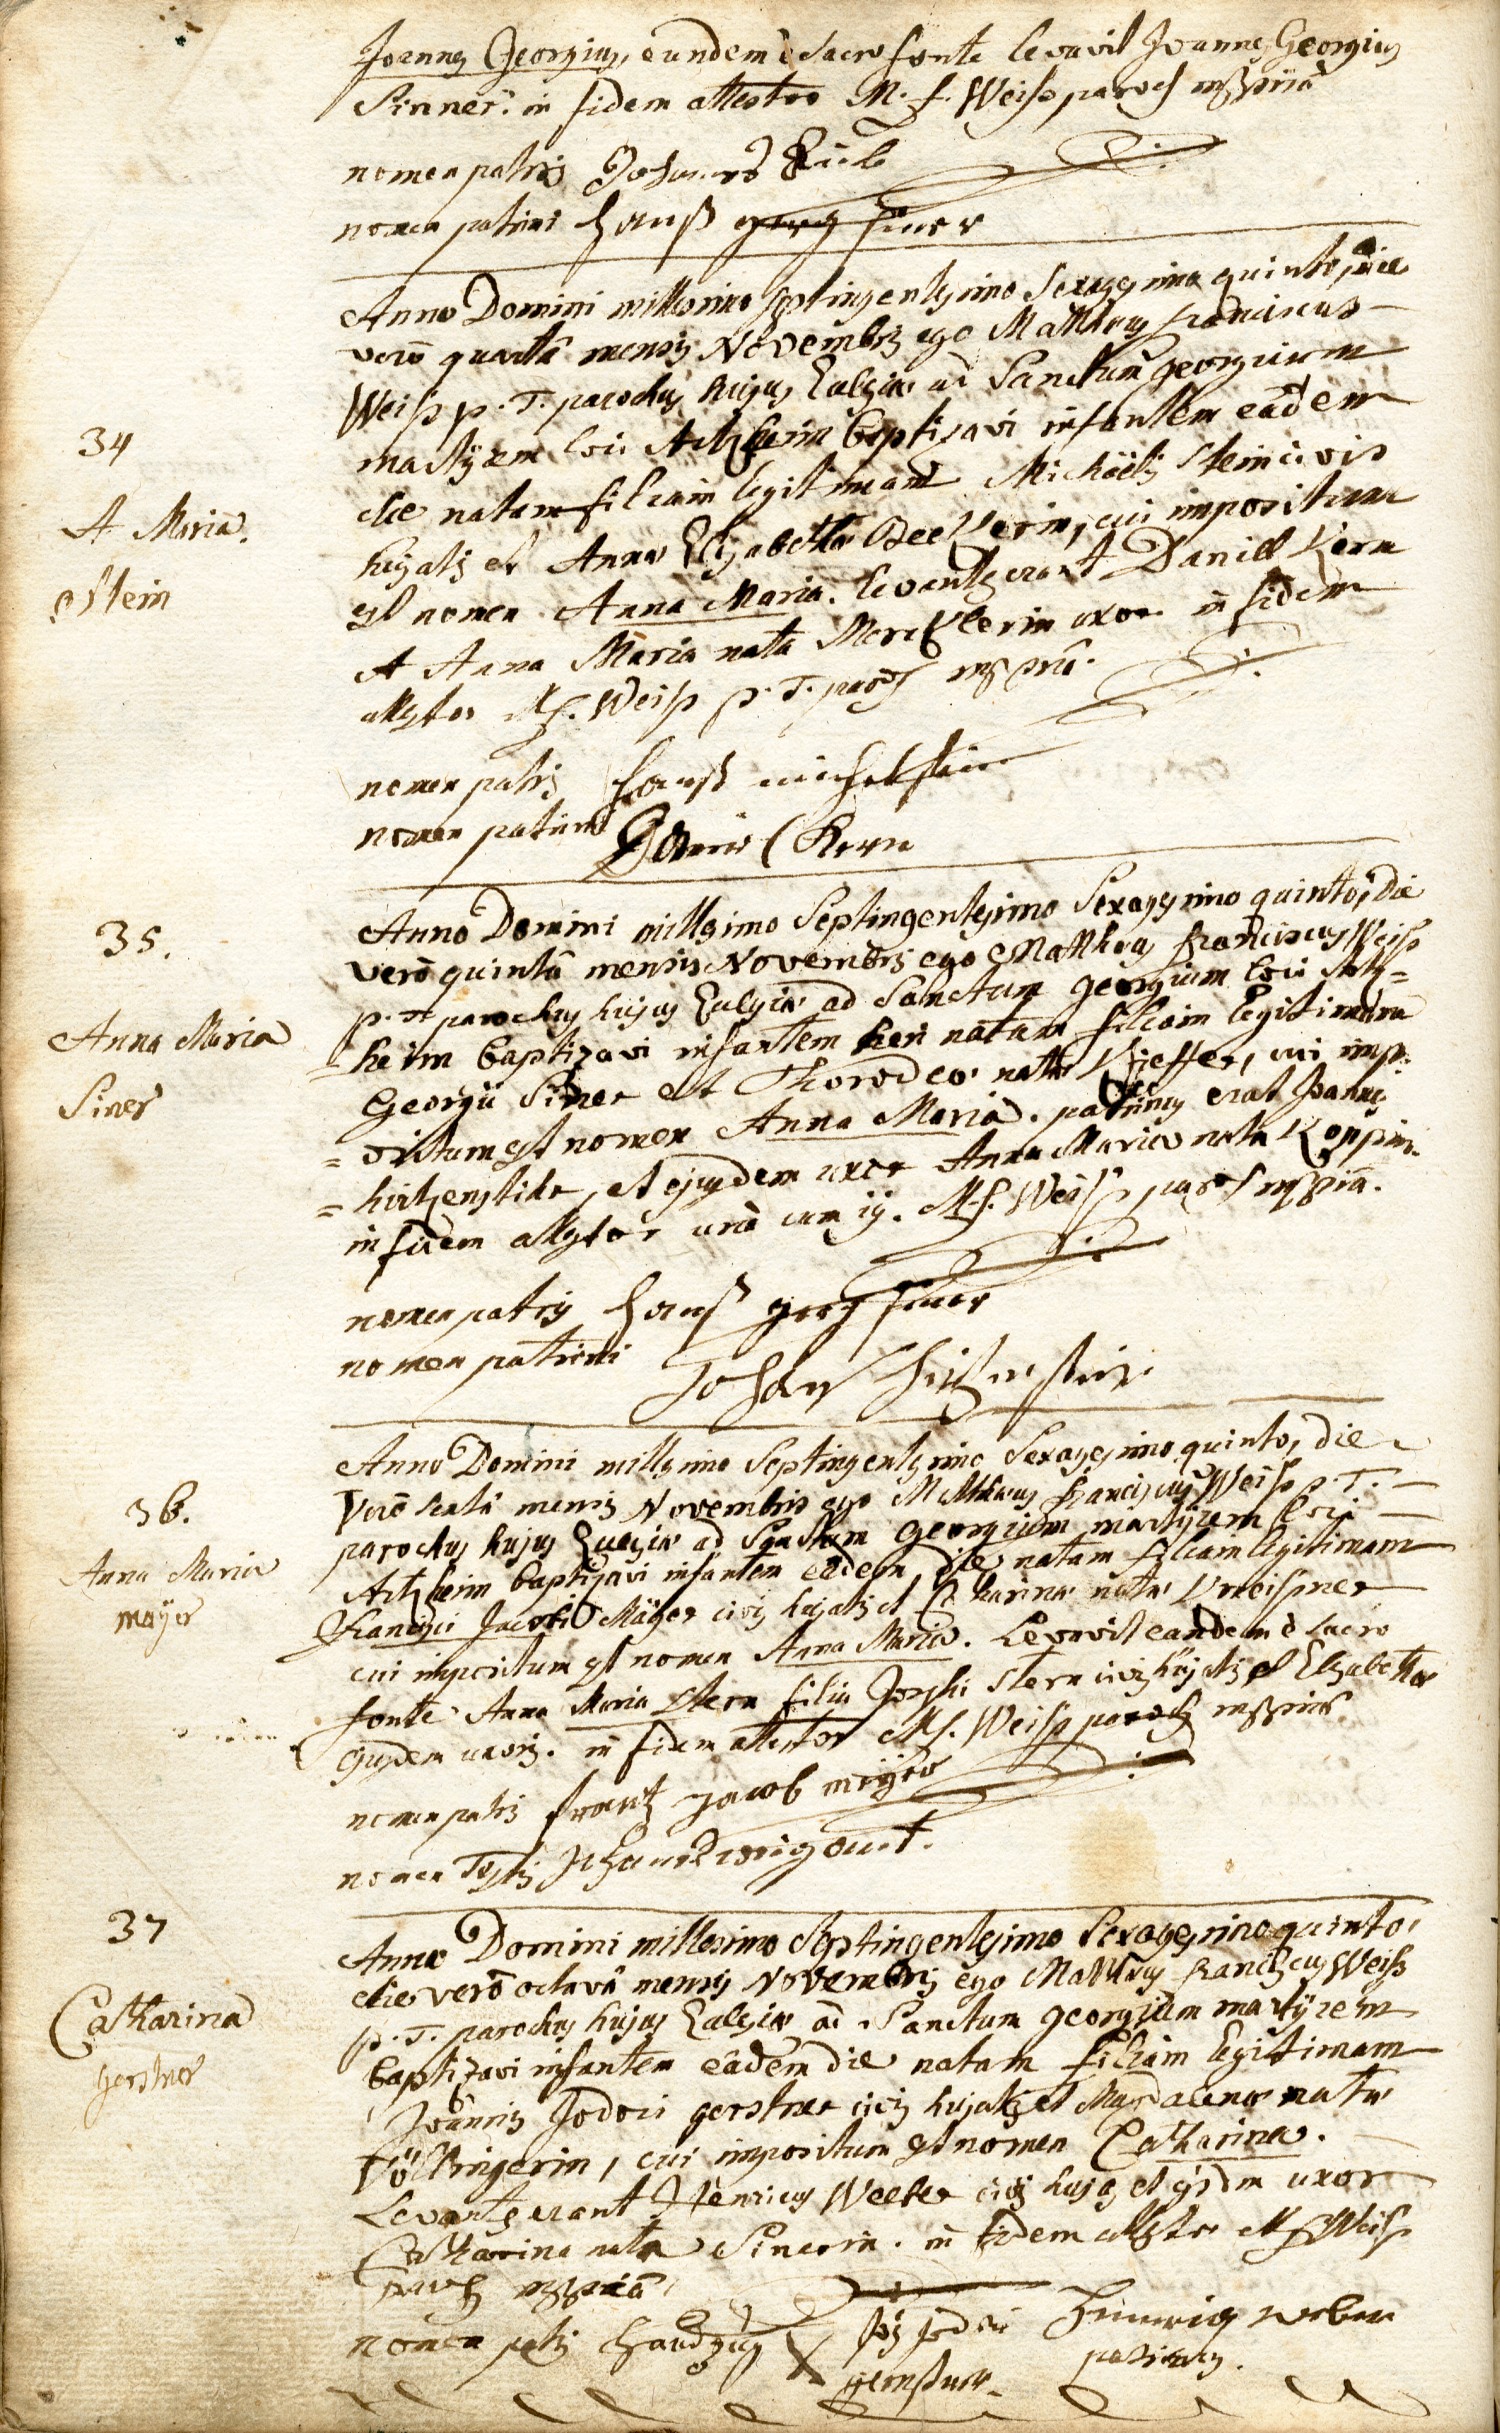 Joannes Georgius, eundem è Sacro fonte levavit Joannes Georgius
Sinner. in fidem attestor M. f. Weiss, paroch
nomen patris Johannes
nomen patrini Hanß gerg siner
Anno Domini millesimo septingentesimo Sexagesimo quinto, die
verò quartâ mensis Novembris ego Matthæus franciscus
Weiss p. T. parochus hujus Eccl[esi]æ ad Sanctum georgium
martÿrem loci Artzheim baptizavi infantem eâdem
34
die natam filiam legitimam Michäelis Stein civis
A Maria
hujatis et Annæ Elisabethæ Beckerin, cui impositum
stein
est nomen Anna Maria. levantes erant Daniel Kern
et Anna Maria nata Mercklerin uxor in fidem
attestor M f. Weiss p. T. paroch mssriâ.
nomen patris Hanß michel stein
nomen patrini Daniel Kern
Anno Domini millesimo Septingentesimo Sexagesimo quinto, die
35.
verò quintâ mensis Novembris ego Matthæus franciscus Weiss
p. T. parochus hujus Eccl[esi]æ ad Sanctum georgium loci Artz=
=heim baptizavi infantem heri natam filiam legitimam
Anna Maria
Georgii Siner et Thorodeæ natæ Kieffer, cui imp=
Siner
=ositum est nomen Anna Maria. patrinus erat Joannes
=hirtzenstihr, et ejusdem uxor Anna Maria nata Koppin.
in fidem attestor unà cum ijs. M. f. Weiss, paroch mssriâ.
nomen patris Hanß gerg siner
nomen patrini Johans
Anno Domini millesimo Septingentesimo Sexagesimo quinto, die
36.
Verò sextâ mensis Novembris ego Matthæus franciscus Weiss p. T.
parochus hujus Eccl[esi]æ ad Sanctum georgium martÿrem loci
Anna Maria
Artzheim baptizavi infantem eâdem die natam filiam legitimam
mayer
francisci Jacobi Mäÿer civis hujatis et Catharinæ natæ
cui impositum est nomen Anna Maria. Levavit eandem è sacro
fonte Anna Maria Stern filia Josephi Stern civis hujatis et Elisabethæ
ejusdem uxoris. in fidem attestor M f. Weiss paroch mssriâ
nomen patris frantz jacob meÿer
nomen Testis
Anno Domini millesimo Septingentesimo Sexagesimo quinto,
37
die verò octavâ mensis Novembris ego Matthæus franciscus Weiss
p. T. parochus hujus Eccl[esi]æ ad Sanctum georgium martÿrem
Catharina
baptizavi infantem eâdem die natam filiam legitimam
gerstner
Joannis Jodoci gerstner civis hujatis et Magdalenæ natæ
Völckingerin, cui impositum est nomen Catharina.
Levantes erant Henricus Weeber civis hujas et ejusdem uxor
Catharina nata Sinerin. in fidem attestor M f Weiss
paroch mssriâ
nomen patris handzug X Jois Jodoci Heinrig weber
gerstner patrinus.